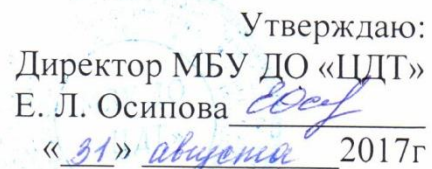 Утверждаю:
Директор МБУ ДО «ЦДТ»
Е. Л. Осипова
« 31 » августа 2017г